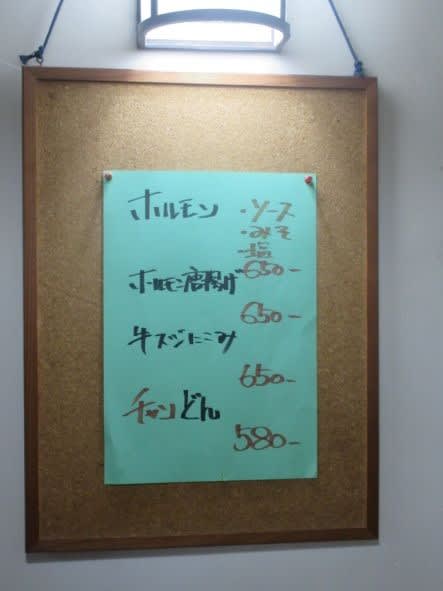 ホルモン ・ソース
・みそ
・塩
650-
ホルモン唐揚げ
650-
牛スジにこみ
650-
チャンどん
580-